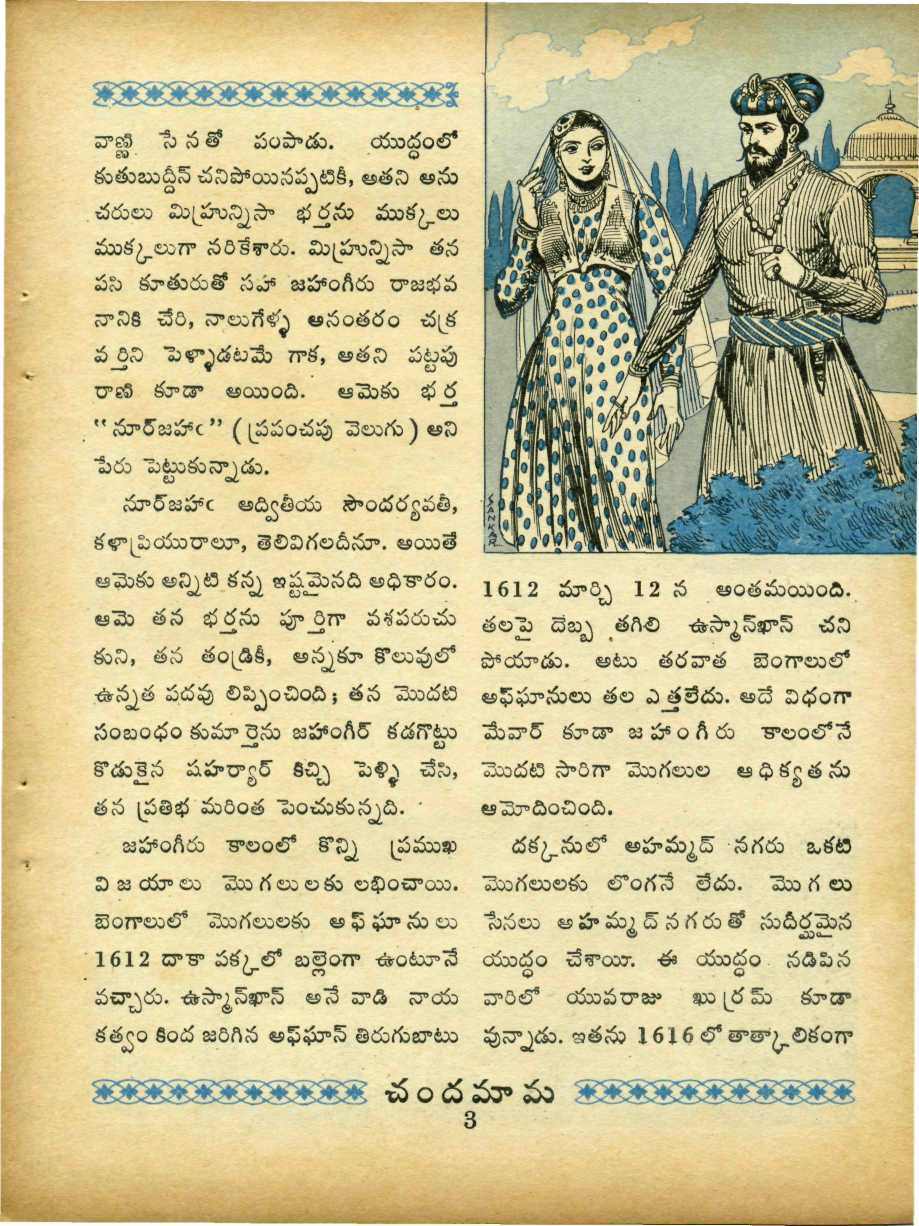 వాణ్ణి సేనతో పంపాడు. యుద్ధంలో
కుతుబుద్దీన్ చనిపోయినప్పటికీ, అతని అను
చరులు మిహ్రున్నిసా భర్తను ముక్కలు
ముక్కలుగా నరికేశారు. మిహ్రున్నిసా తన
పసి కూతురుతో సహా జహాంగీరు రాజభవ
నానికి చేరి, నాలుగేళ్ళ అనంతరం చక్ర
వర్తిని పెళ్ళాడటమే గాక, అతని పట్టపు
రాణి కూడా అయింది. ఆమెకు భర్త
“నూర్‌జహాఁ” (ప్రపంచపు వెలుగు) అని
పేరు పెట్టుకున్నాడు.
నూర్‌జహాఁ అద్వితీయ సౌందర్యవతీ,
కళాప్రియురాలూ, తెలివిగలదీనూ. అయితే
ఆమెకు అన్నిటి కన్న ఇష్టమైనది అధికారం.
ఆమె తన భర్తను పూర్తిగా వశపరుచు
కుని, తన తండ్రికీ, అన్నకూ కొలువులో
ఉన్నత పదవు లిప్పించింది; తన మొదటి
సంబంధం కుమార్తెను జహాంగీర్ కడగొట్టు
కొడుకైన షహర్యార్ కిచ్చి పెళ్ళి చేసి,
తన ప్రతిభ మరింత పెంచుకున్నది.
జహాంగీరు కాలంలో కొన్ని ప్రముఖ
విజయాలు మొగలులకు లభించాయి.
బెంగాలులో మొగలులకు ఆఫ్‌ఘానులు
1612 దాకా పక్కలో బల్లెంగా ఉంటూనే
వచ్చారు. ఉస్మాన్‌ఖాన్ అనే వాడి నాయ
కత్వం కింద జరిగిన అఫ్‌ఘాన్ తిరుగుబాటు
SANKAR
1612 మార్చి 12 న అంతమయింది.
తలపై దెబ్బ తగిలి ఉస్మాన్‌ఖాన్ చని
పోయాడు. అటు తరవాత బెంగాలులో
అఫ్‌ఘానులు తల ఎత్తలేదు. అదే విధంగా
మేవార్ కూడా జహాంగీరు కాలంలోనే
మొదటి సారిగా మొగలుల ఆధిక్యతను
ఆమోదించింది.
దక్కనులో అహమ్మద్ నగరు ఒకటి
మొగలులకు లొంగనే లేదు. మొగలు
సేనలు అహమ్మద్‌నగరుతో సుదీర్ఘమైన
యుద్ధం చేశాయి. ఈ యుద్ధం నడిపిన
వారిలో యువరాజు ఖుర్రమ్ కూడా
వున్నాడు. ఇతను 1616 లో తాత్కాలికంగా
చందమామ
3